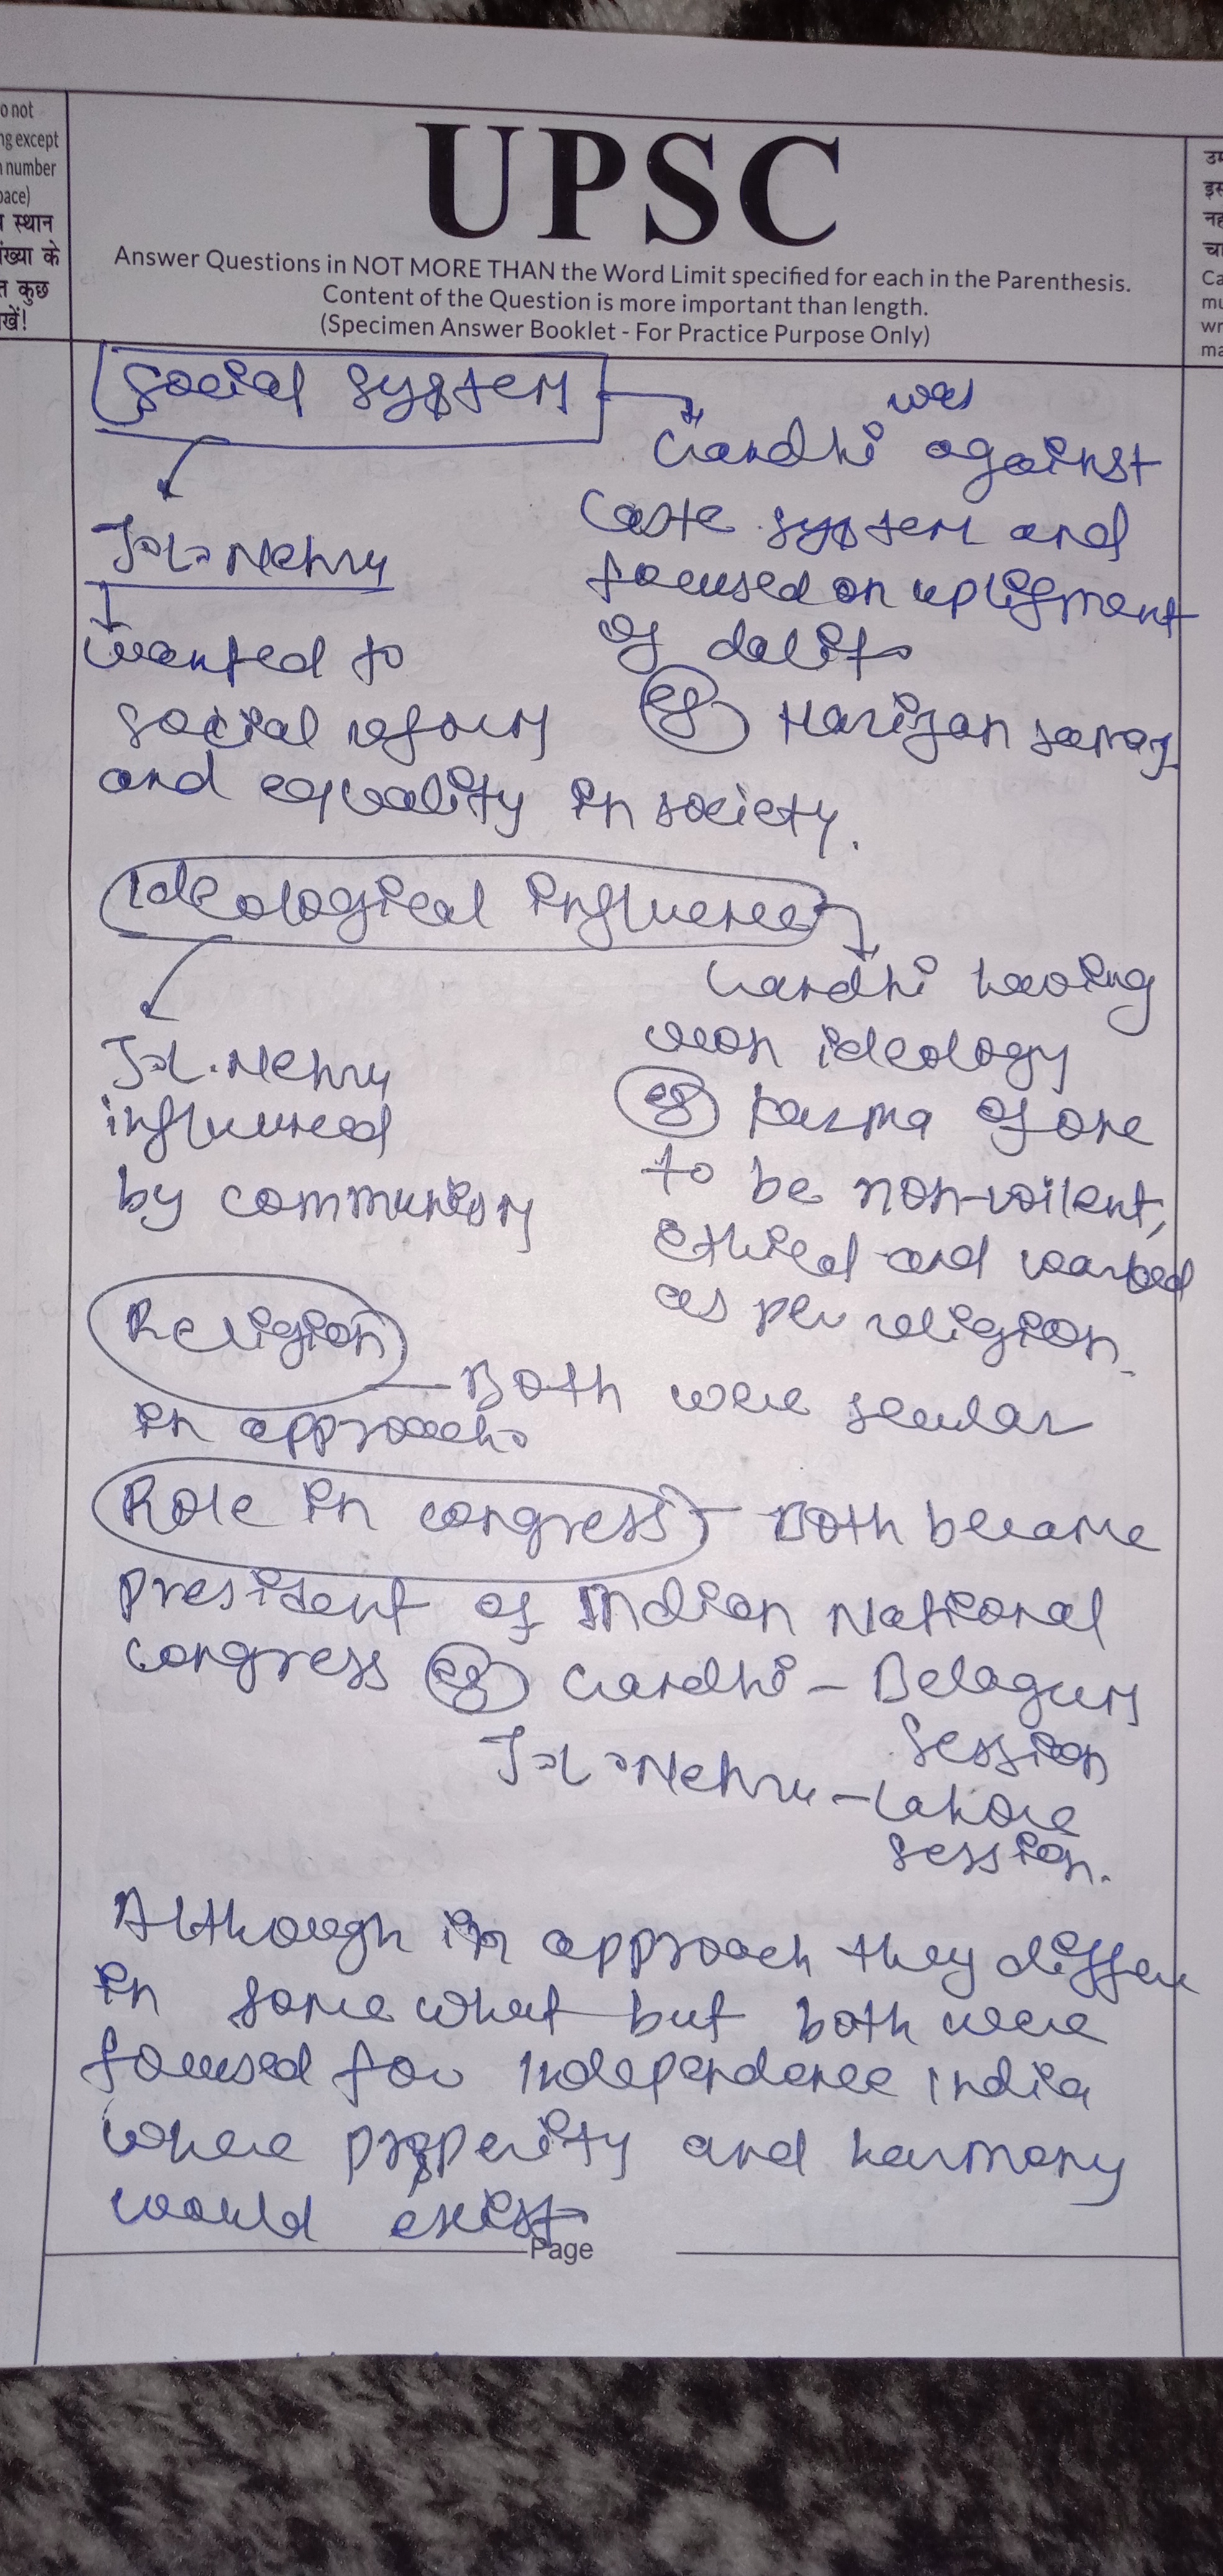 o not
ng except
n number
pace)
स्थान
ंख्या के
त कुछ
खें!
उम
इस
नह
चा
Ca
mu
wr
ma
UPSC
Answer Questions in NOT MORE THAN the Word Limit specified for each in the Parenthesis.
Content of the Question is more important than length.
(Specimen Answer Booklet - For Practice Purpose Only)
Social system
was
Gandhi against
caste system and
focused on upligment
of dalits
eg Harijan
J.L. Nehru
wanted to
social reform
and equality in society.
Ideological influence
Gandhi having
own ideology
eg karma of one
to be non-voilent,
ethical and
as per religion.
J.L. Nehru
influenced
by communism
Religion — Both were secular
in approach.
Role in congress — Both became
president of Indian National
congress eg Gandhi – Belagum
session
J.L. Nehru – Lahore
session.
Although in approach they differ
in some what but both were
focused for independence India
where prosperity and harmony
would exist
Page